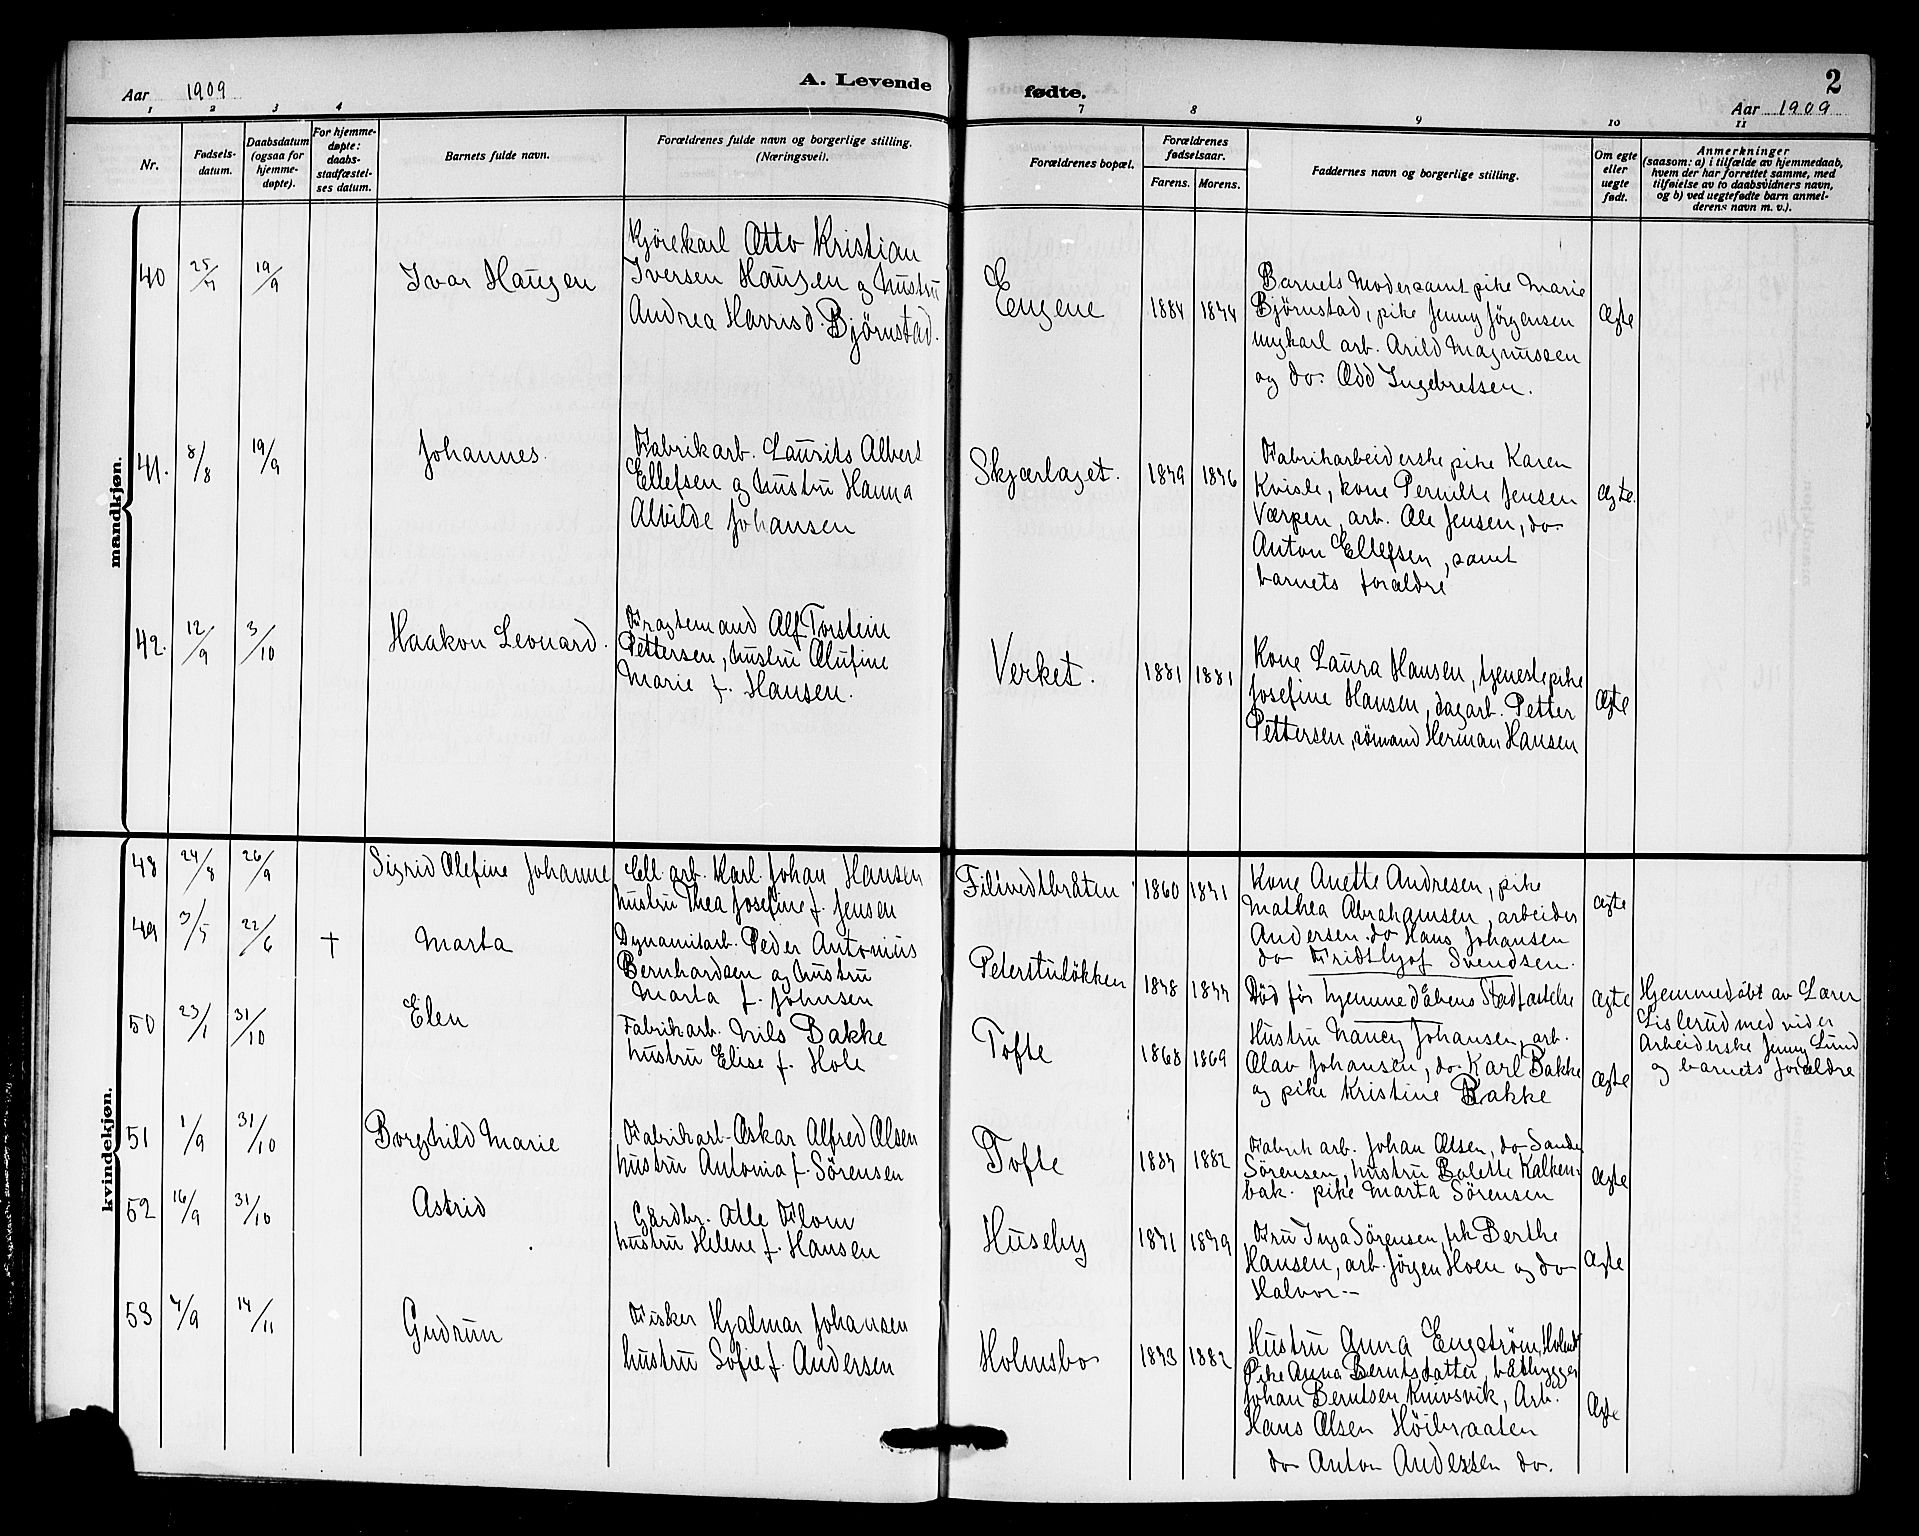 Aar 1909
A. Levende
fødte.
2
Aar 1909
1 2 3 4 7 8 9 10 11
Nr.
Fødsels-
datum.
Daabsdatum
(ogsaa for
hjemme-
døpte).
For hjemme-
døpte:
daabs-
stadfæstel-
ses datum.
Barnets fulde navn.
Forældrenes fulde navn og borgerlige stilling.
(Næringsvei).
Forældrenes bopæl.
Forældrenes
fødselsaar.
Farens. Morens.
Faddernes navn og borgerlige stilling.
Om egte
eller
uegte
født.
Anmerkninger
(saasom: a) i tilfælde av hjemmedaab,
hvem der har forrettet samme, med
tilføielse av to daabsvidners navn,
og b) ved uegtefødte barn anmel-
derens navn m. v.).
mandkjøn.
40
25/7
19/9
Ivar Haugen
Kjørekarl Otto Kristian
Iversen Haugen og hustru
Andrea Harrisd. Bjørnstad.
Engene
1884 1874
Barnets Moder samt pike Marie
Bjørnstad, pike Jenny Jørgensen
ungkarl arb. Arild Magnussen
og do. Odd Ingebretsen.
Ægte
41.
8/8
19/9
Johannes.
Fabrikarb. Laurits Albert
Ellefsen og hustru Hanna
Alvilde Johansen
Skjærlaget.
1879 1876
Fabrikarbeiderske pike Karen
Kvisle, kone Pernille Jensen
Værpen, arb. Ole Jensen, do
Anton Ellefsen, samt
barnets forældre
ægte.
42.
12/9
3/10
Haakon Leonard.
Fragtemand Alf Torstein
Pettersen, hustru Olufine
Marie f. Hansen.
Verket.
1881 1881
Kone Laura Hansen, tjenestepike
Josefine Hansen, dagarb. Petter
Pettersen, sømand Herman Hansen
Ægte
kvindekjøn.
48
24/8
26/9
Sigrid Olefine Johanne
Cell arb. Karl Johan Hansen
hustru Thea Josefine f. Jensen
Filtvedtbråten
1860 1871
Kone Anette Andresen, pike
Mathea Abrahamsen, arbeider
Andersen. do Hans Johansen
do Fridthjof Svendsen.
ægte
49
3/5
22/6
+
Marta
Dynamitarb. Peder Antonius
Bernhardsen og hustru
Marta f. Johnsen
Peterstuløkken
1878 1877
Død før hjemmedåbens Stadfæstelse
ægte
Hjemmedøbt av Lærer
Lislerud med vidner
Arbeiderske Jenny Lund
og barnets forældre
50
23/1
31/10
Elen
Fabrikarb. Nils Bakke
hustru Elise f. Hole
Tofte
1868 1869
Hustru Nancy Johansen, arb.
Olav Johansen, do Karl Bakke
og pike Kristine Bakke
Ægte
51
1/9
31/10
Borghild Marie
Fabrikarb. Oskar Alfred Olsen
hustru Antonia f. Sørensen
Tofte
1882
Fabrik arb. Johan Olsen, do Sander
Sørensen, hustru Bolette Kalken-
bak. pike Marta Sørensen
Ægte
52
16/9
31/10
Astrid
Gårdbr. Atle Flom
hustru Helene f. Hansen
Huseby
1871 1879
Fru Inga Sørensen, frk Berthe
Hansen, arb. Jørgen Hoen og do
Halvor –
Ægte
53
7/9
14/11
Gudrun
Fisker Hjalmar Johansen
hustru Sofie f. Andersen
Holmsbo
1873 1882
Hustru Anna Engstrøm,
Pike Anna Berntsdatter, båtbygger
Johan Berntsen Knivsvik, Arb.
Hans Olsen Høibraaten
do Anton Andersen do.
Ægte